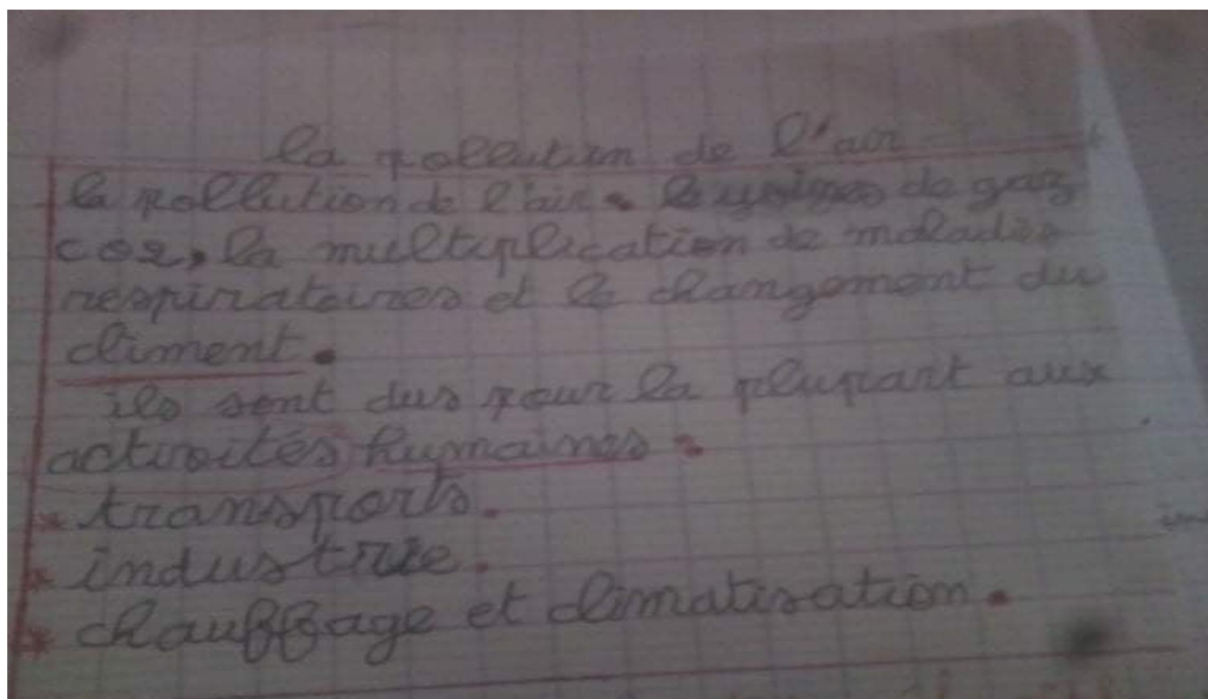 la pollution de l'air
la pollution de l'air. le usines de gaz
co2, la multiplication de maladies
respiratoires et le changement du
climent.
ils sont dus pour la plupart aux
activités humaines :
* transports.
* industrie.
* chauffage et climatisation.